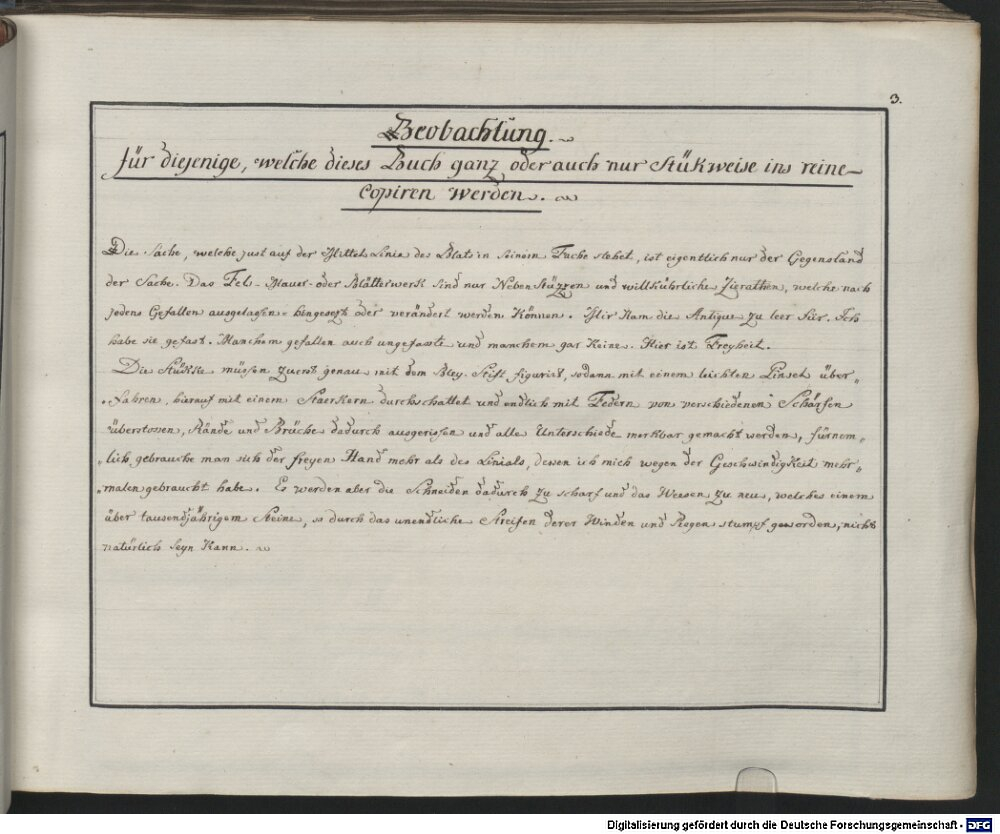 3.
Beobachtung.
für diejenige, welche dieses Buch ganz oder auch nur stükweise ins reine
copiren werden.
Die Sache, welche just auf der Mittel Linie des Blats in seinem Fache stehet, ist eigentlich nur der Gegenstand
der Sache. Das Fels-Mauer-oder Blätterwerk sind nur Neben Stüzzen und willkührliche Zierathen, welche nach
jedens Gefallen ausgelassen-hingesezt oder verändert werden können. Mir kam die Antique zu leer für. Ich
habe sie gefast. Manchem gefallen auch ungefasste und manchem gar keine. Hier ist Freyheit.
Die Stükke müssen zuerst genau mit dem Bley-Stift figurirt, sodann mit einem leichten Pinsel über„
„fahren, hierauf mit einem staerkern durchschattet und endlich mit Federn von verschiedenen Schärfen
überstossen, Rände und Brüche dadurch ausgerissen und alle Unterschiede merkbar gemacht werden, fürnem„
„lich gebrauche man sich der freyen Hand mehr als des Linials, dessen ich mich wegen der Geschwindigkeit mehr„
„malen gebraucht habe. Es werden aber die Schneiden dadurch zu scharf und das Weesen zu neu, welches einem
über tausendjährigem Steine, so durch das unendliche Streifen derer Winden und Regen stumpf geworden, nicht
natürlich seyn kann.
Digitalisierung gefördert durch die Deutsche Forschungsgemeinschaft - DFG